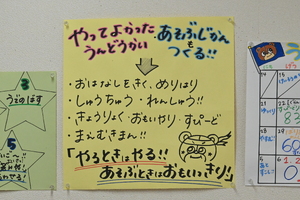 やってよかった
うんどうかい
あそぶじかん
も
つくる!!
・おはなしをきく、めりはり
・しゅうちゅう・れんしゅう!!
・きょうりょく・おもいやり・すぴーど
・まえむきまん!!
「やるときはやる!!
あそぶときはおもいっきり」
3
うえのはす
5